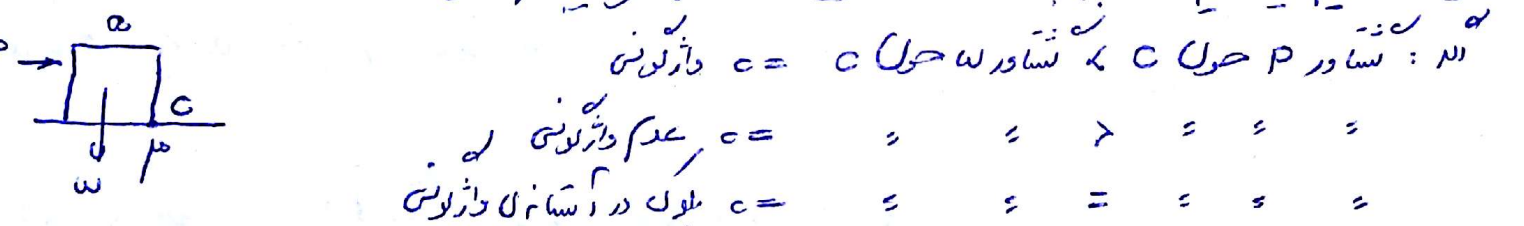 اگر : گشتاور P حول C > گشتاور W حول C ⇐ واژگونی
〃 〃 〃 < 〃 〃 ⇐ عدم واژگونی
〃 〃 〃 = 〃 〃 ⇐ بلوک در آستانه‌ی واژگونی
a
C
W
μ